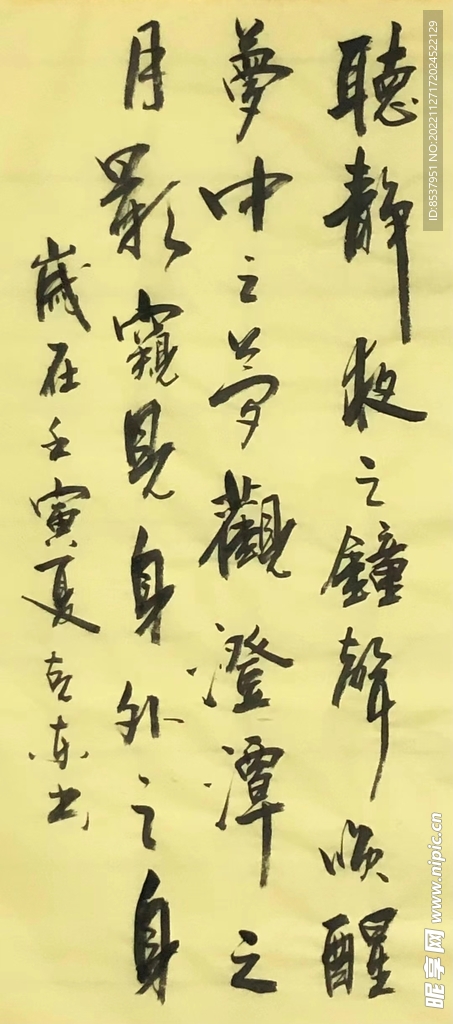 聽静夜之鐘聲唤醒
夢中之夢觀澄潭之
月影窺見身外之身
歲在壬寅夏克东书
ID:8537951 NO:20221127172024522129
昵享网 www.nipic.cn